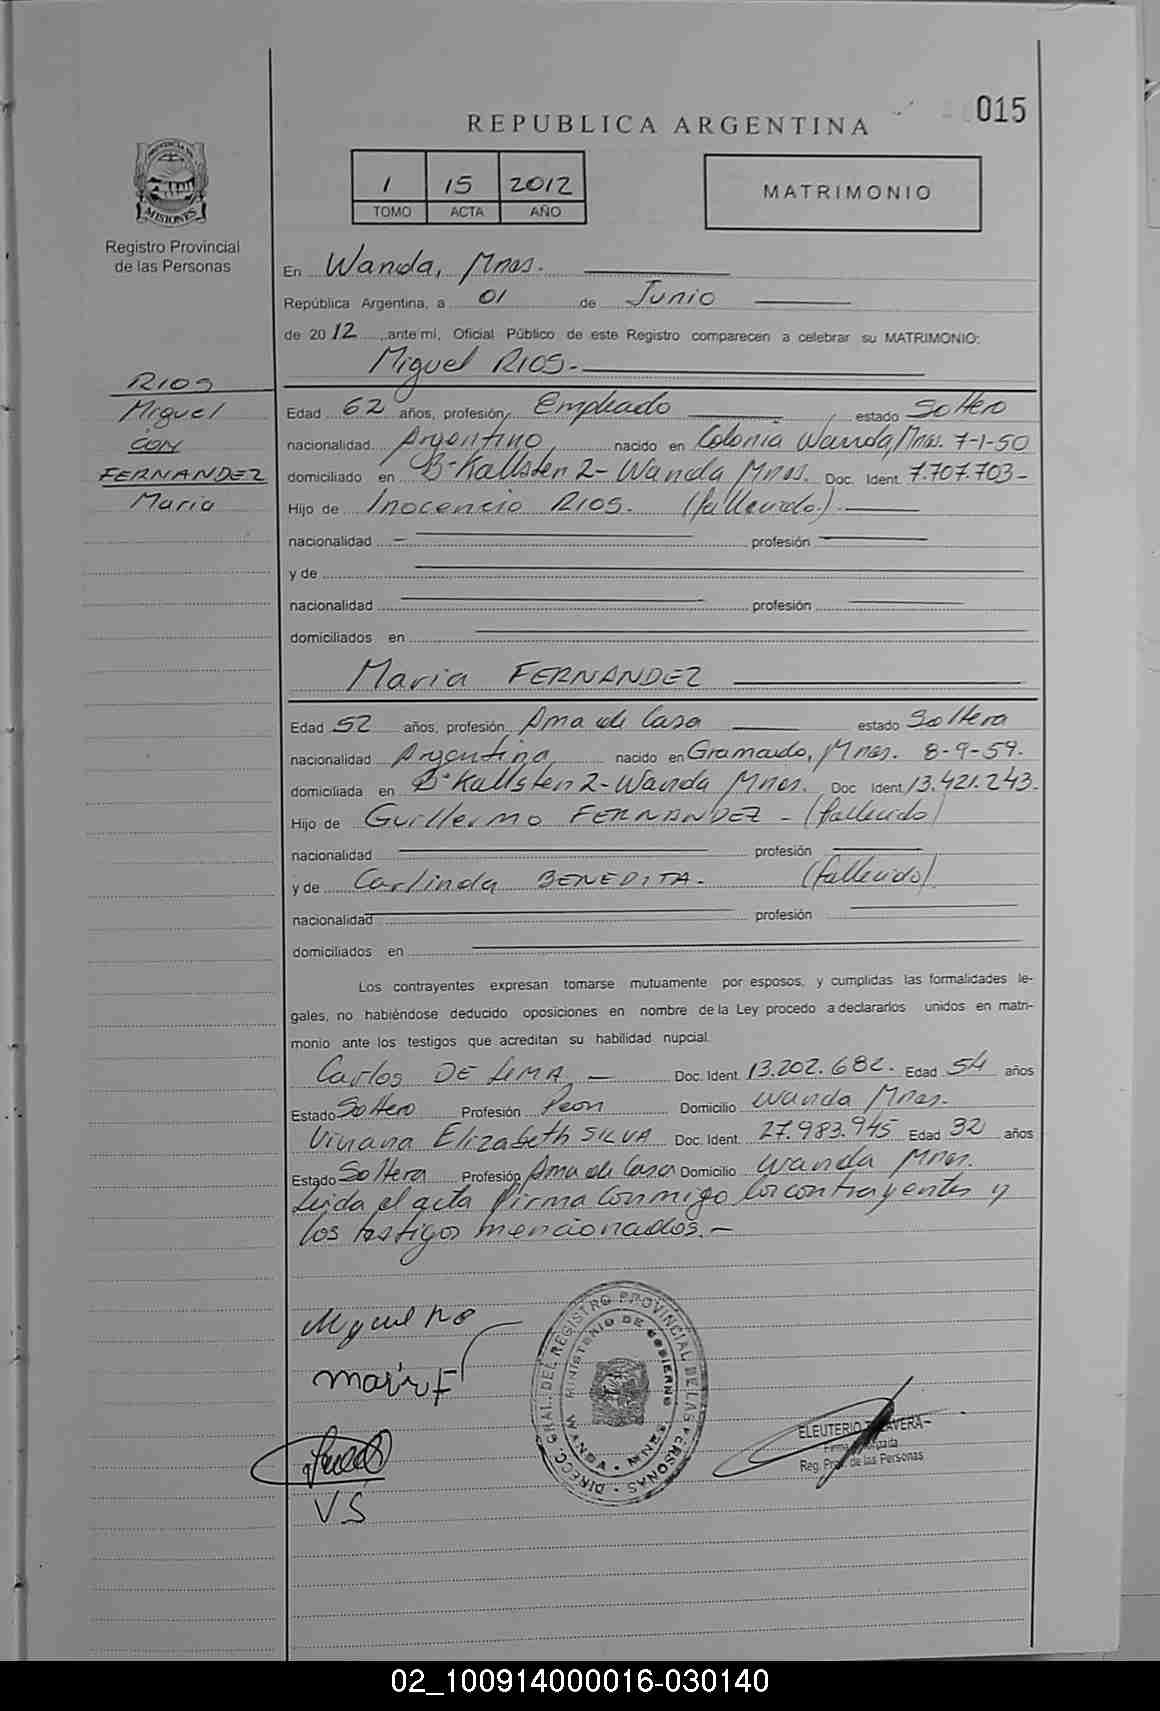 015
REPUBLICA ARGENTINA
1 15 2012
TOMO ACTA AÑO
MATRIMONIO
PROVINCIA DE
MISIONES
Registro Provincial
de las Personas
RIOS
Miguel
CON
FERNANDEZ
Maria
En Wanda, Mnes.
República Argentina, a 01 de Junio
de 2012, ante mí, Oficial Público de este Registro comparecen a celebrar su MATRIMONIO:
Miguel RIOS.-
Edad 62 años, profesión, Empleado estado Soltero
nacionalidad Argentino nacido en Colonia Wanda, Mnes. 7-1-50
domiciliado en B° Kallsten 2- Wanda Mnes. Doc. Ident. 7.707.703-
Hijo de Inocencio RIOS. (fallecido).
nacionalidad profesión
y de
nacionalidad profesión
domiciliados en
Maria FERNANDEZ
Edad 52 años, profesión Ama de Casa estado Soltera
nacionalidad Argentina nacido en Gramado, Mnes. 8-9-59.
domiciliada en B° Kallsten 2-Wanda Mnes. Doc Ident. 13.421.243.
Hijo de Guillermo FERNANDEZ - (fallecido)
nacionalidad profesión
y de Carlinda BENEDITA. (fallecido).
nacionalidad profesión
domiciliados en
Los contrayentes expresan tomarse mutuamente por esposos, y cumplidas las formalidades le-
gales, no habiéndose deducido oposiciones en nombre de la Ley procedo a declararlos unidos en matri-
monio ante los testigos que acreditan su habilidad nupcial.
Carlos DE LIMA - Doc. Ident. 13.202.682. Edad 54 años
Estado Soltero Profesión Peon Domicilio Wanda Mnes.
Viviana Elizabeth SILVA Doc. Ident. 27.983.945 Edad 32 años
Estado Soltera Profesión Ama de Casa Domicilio Wanda Mnes.
Leida el acta firma conmigo los contrayentes y
los testigos mencionados.-
Miguel Rios
maria F
V S
DIRECC. GRAL. DEL REGISTRO PROVINCIAL DE LAS PERSONAS
MINISTERIO DE GOBIERNO
WANDA - MNES
ELEUTERIO
Reg. Prov. de las Personas
02_100914000016-030140